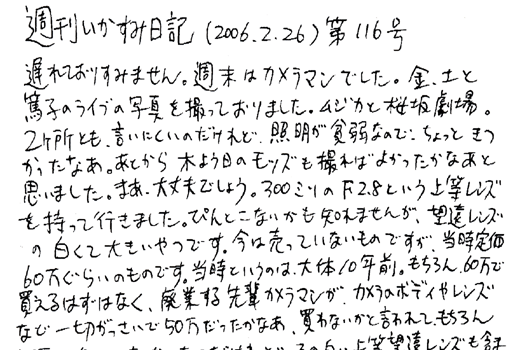 週刊いかすみ日記 (2006.2.26) 第116号
遅れておりすみません。週末はカメラマンでした。金、土と
篤子のライブの写真を撮っておりました。ムジカと桜坂劇場。
2ヶ所とも、言いにくいのだけれど、照明が貧弱なので、ちょっときつ
かったなあ。あとから木よう日のモッズも撮ればよかったかなあと
思いました。まあ、大丈夫でしょう。300ミリのF2.8という上等レンズ
を持って行きました。ぴんとこないかも知れませんが、望遠レンズ
の白くて大きいやつです。今は売っていないものですが、当時定価
60万ぐらいのものです。当時というのは、大体10年前。もちろん、60万で
買えるはずはなく、廃業する先輩カメラマンが、カメラのボディやレンズ
など一切がっさいで50万だったかなあ、買わないかと言われて、もちろん